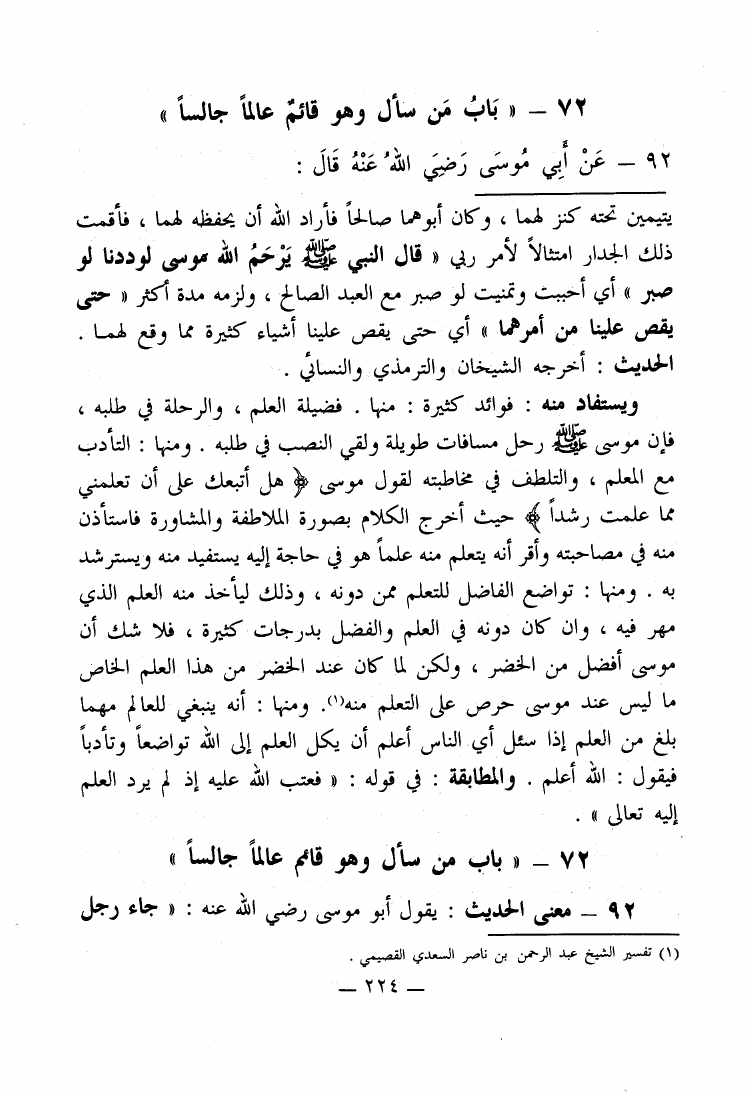 ٧٢ – « بَابُ مَن سأل وهو قائمٌ عالماً جالساً »
٩٢ – عَنْ أَبِي مُوسَى رَضِيَ اللهُ عَنْهُ قَالَ :
يتيمين تحته كنز لهما ، وكان أبوهما صالحاً فأراد الله أن يحفظه لهما ، فأقمت
ذلك الجدار امتثالاً لأمر ربي « قال النبي ﷺ يَرْحَمُ الله موسى لوددنا لو
صبر » أي أحببت وتمنيت لو صبر مع العبد الصالح ، ولزمه مدة أكثر « حتى
يقص علينا من أمرهما » أي حتى يقص علينا أشياء كثيرة مما وقع لهما .
الحديث : أخرجه الشيخان والترمذي والنسائي .
ويستفاد منه : فوائد كثيرة : منها . فضيلة العلم ، والرحلة في طلبه ،
فإن موسى ﷺ رحل مسافات طويلة ولقي النصب في طلبه . ومنها : التأدب
مع المعلم ، والتلطف في مخاطبته لقول موسى ﴿ هل أتبعك على أن تعلمني
مما علمت رشداً ﴾ حيث أخرج الكلام بصورة الملاطفة والمشاورة فاستأذن
منه في مصاحبته وأقر أنه يتعلم منه علماً هو في حاجة إليه يستفيد منه ويسترشد
به . ومنها : تواضع الفاضل للتعلم ممن دونه ، وذلك ليأخذ منه العلم الذي
مهر فيه ، وان كان دونه في العلم والفضل بدرجات كثيرة ، فلا شك أن
موسى أفضل من الخضر ، ولكن لما كان عند الخضر من هذا العلم الخاص
ما ليس عند موسى حرص على التعلم منه(١). ومنها : أنه ينبغي للعالم مهما
بلغ من العلم إذا سئل أي الناس أعلم أن يكل العلم إلى الله تواضعاً وتأدباً
فيقول : الله أعلم . والمطابقة : في قوله : « فعتب الله عليه إذ لم يرد العلم
إليه تعالى » .
٧٢ – « باب من سأل وهو قائم عالماً جالساً »
٩٢ – معنى الحديث : يقول أبو موسى رضي الله عنه : « جاء رجل
(١) تفسير الشيخ عبد الرحمن بن ناصر السعدي القصيمي .
– ٢٢٤ –